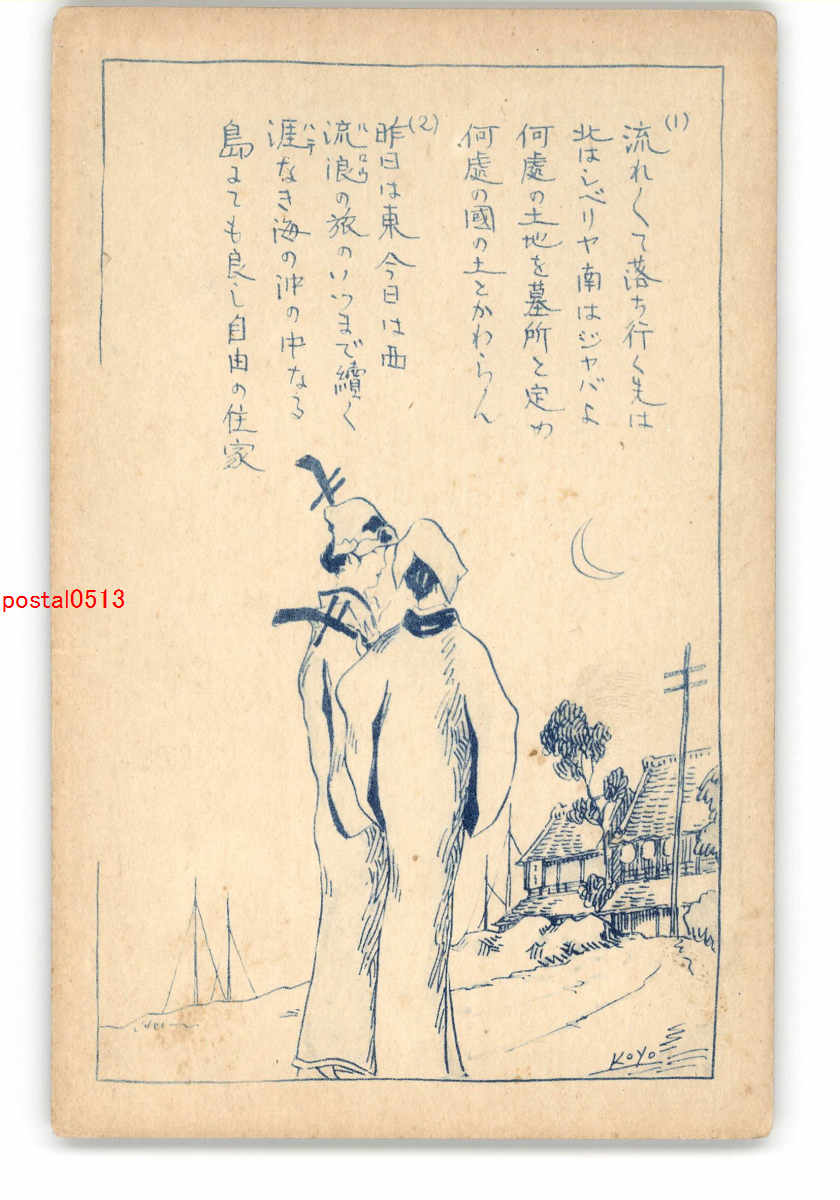 (1)
流れ〱て落ち行く先は
北はシベリヤ南はジャバよ
何處の土地を墓所と定め
何處の國の土とかわらん
(2)
昨日は東今日は西
流浪の旅のいつまで續く
ルロウ
涯なき海の沖の中なる
ハテ
島にても良し自由の住家
KOYO
postal0513